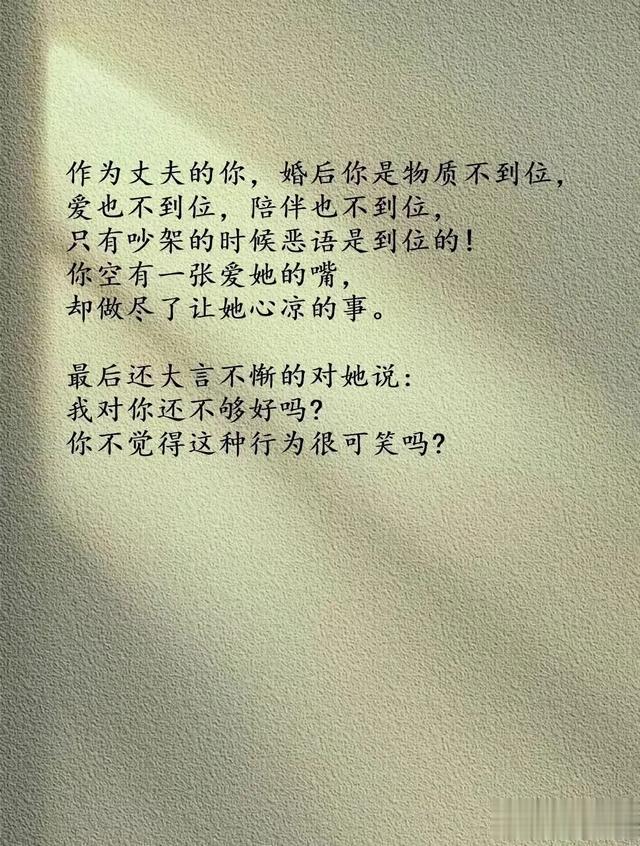 作为丈夫的你，婚后你是物质不到位，
爱也不到位，陪伴也不到位，
只有吵架的时候恶语是到位的！
你空有一张爱她的嘴，
却做尽了让她心凉的事。
最后还大言不惭的对她说：
我对你还不够好吗？
你不觉得这种行为很可笑吗？